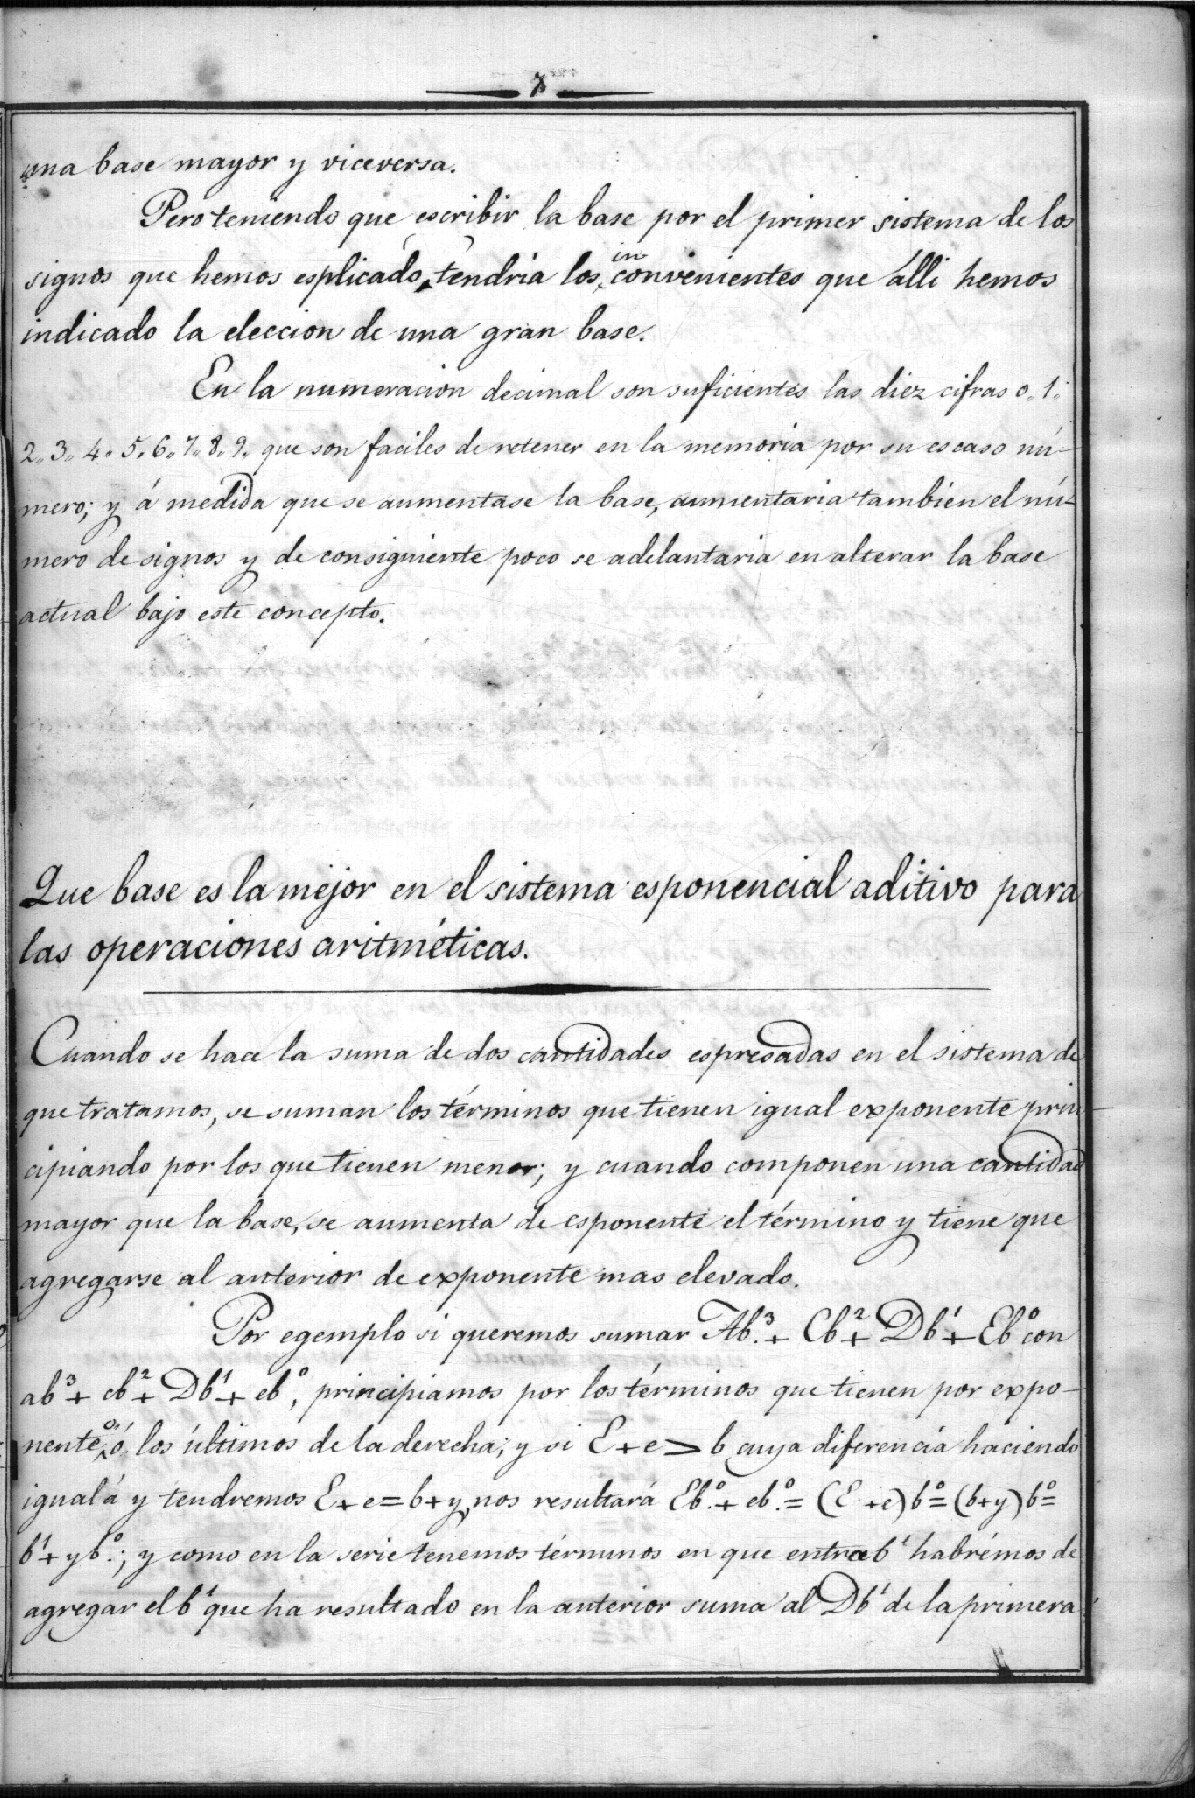 7
una base mayor y viceversa.
Pero teniendo que escribir la base por el primer sistema de los
signos que hemos esplicado, tendria los inconvenientes que alli hemos
indicado la eleccion de una gran base.
En la numeracion decimal son suficientes las diez cifras 0. 1.
2. 3. 4. 5. 6. 7. 8. 9. que son faciles de retener en la memoria por su escaso nú-
mero; y á medida que se aumentase la base, aumentaria tambien el nú-
mero de signos y de consiguiente poco se adelantaria en alterar la base
actual bajo este concepto.
Que base es la mejor en el sistema esponencial aditivo para
las operaciones aritméticas.
Cuando se hace la suma de dos cantidades espresadas en el sistema de
que tratamos, se suman los términos que tienen igual exponente prin-
cipiando por los que tienen menor; y cuando componen una cantidad
mayor que la base, se aumenta de esponente el término y tiene que
agregarse al anterior de exponente mas elevado.
Por egemplo si queremos sumar Ab³ + Cb² + Db¹ + Eb⁰ con
ab³ + cb² + Db¹ + eb⁰, principiamos por los términos que tienen por expo-
nente 0, ó los últimos de la derecha; y si E + e > b cuya diferencia haciendo
igual á y tendremos E + e = b + y, nos resultará Eb⁰ + eb⁰ = (E + e) b⁰ = (b + y) b⁰ =
b¹ + yb⁰; y como en la serie tenemos términos en que entra b¹ habrémos de
agregar el b¹ que ha resultado en la anterior suma al Db¹ de la primera